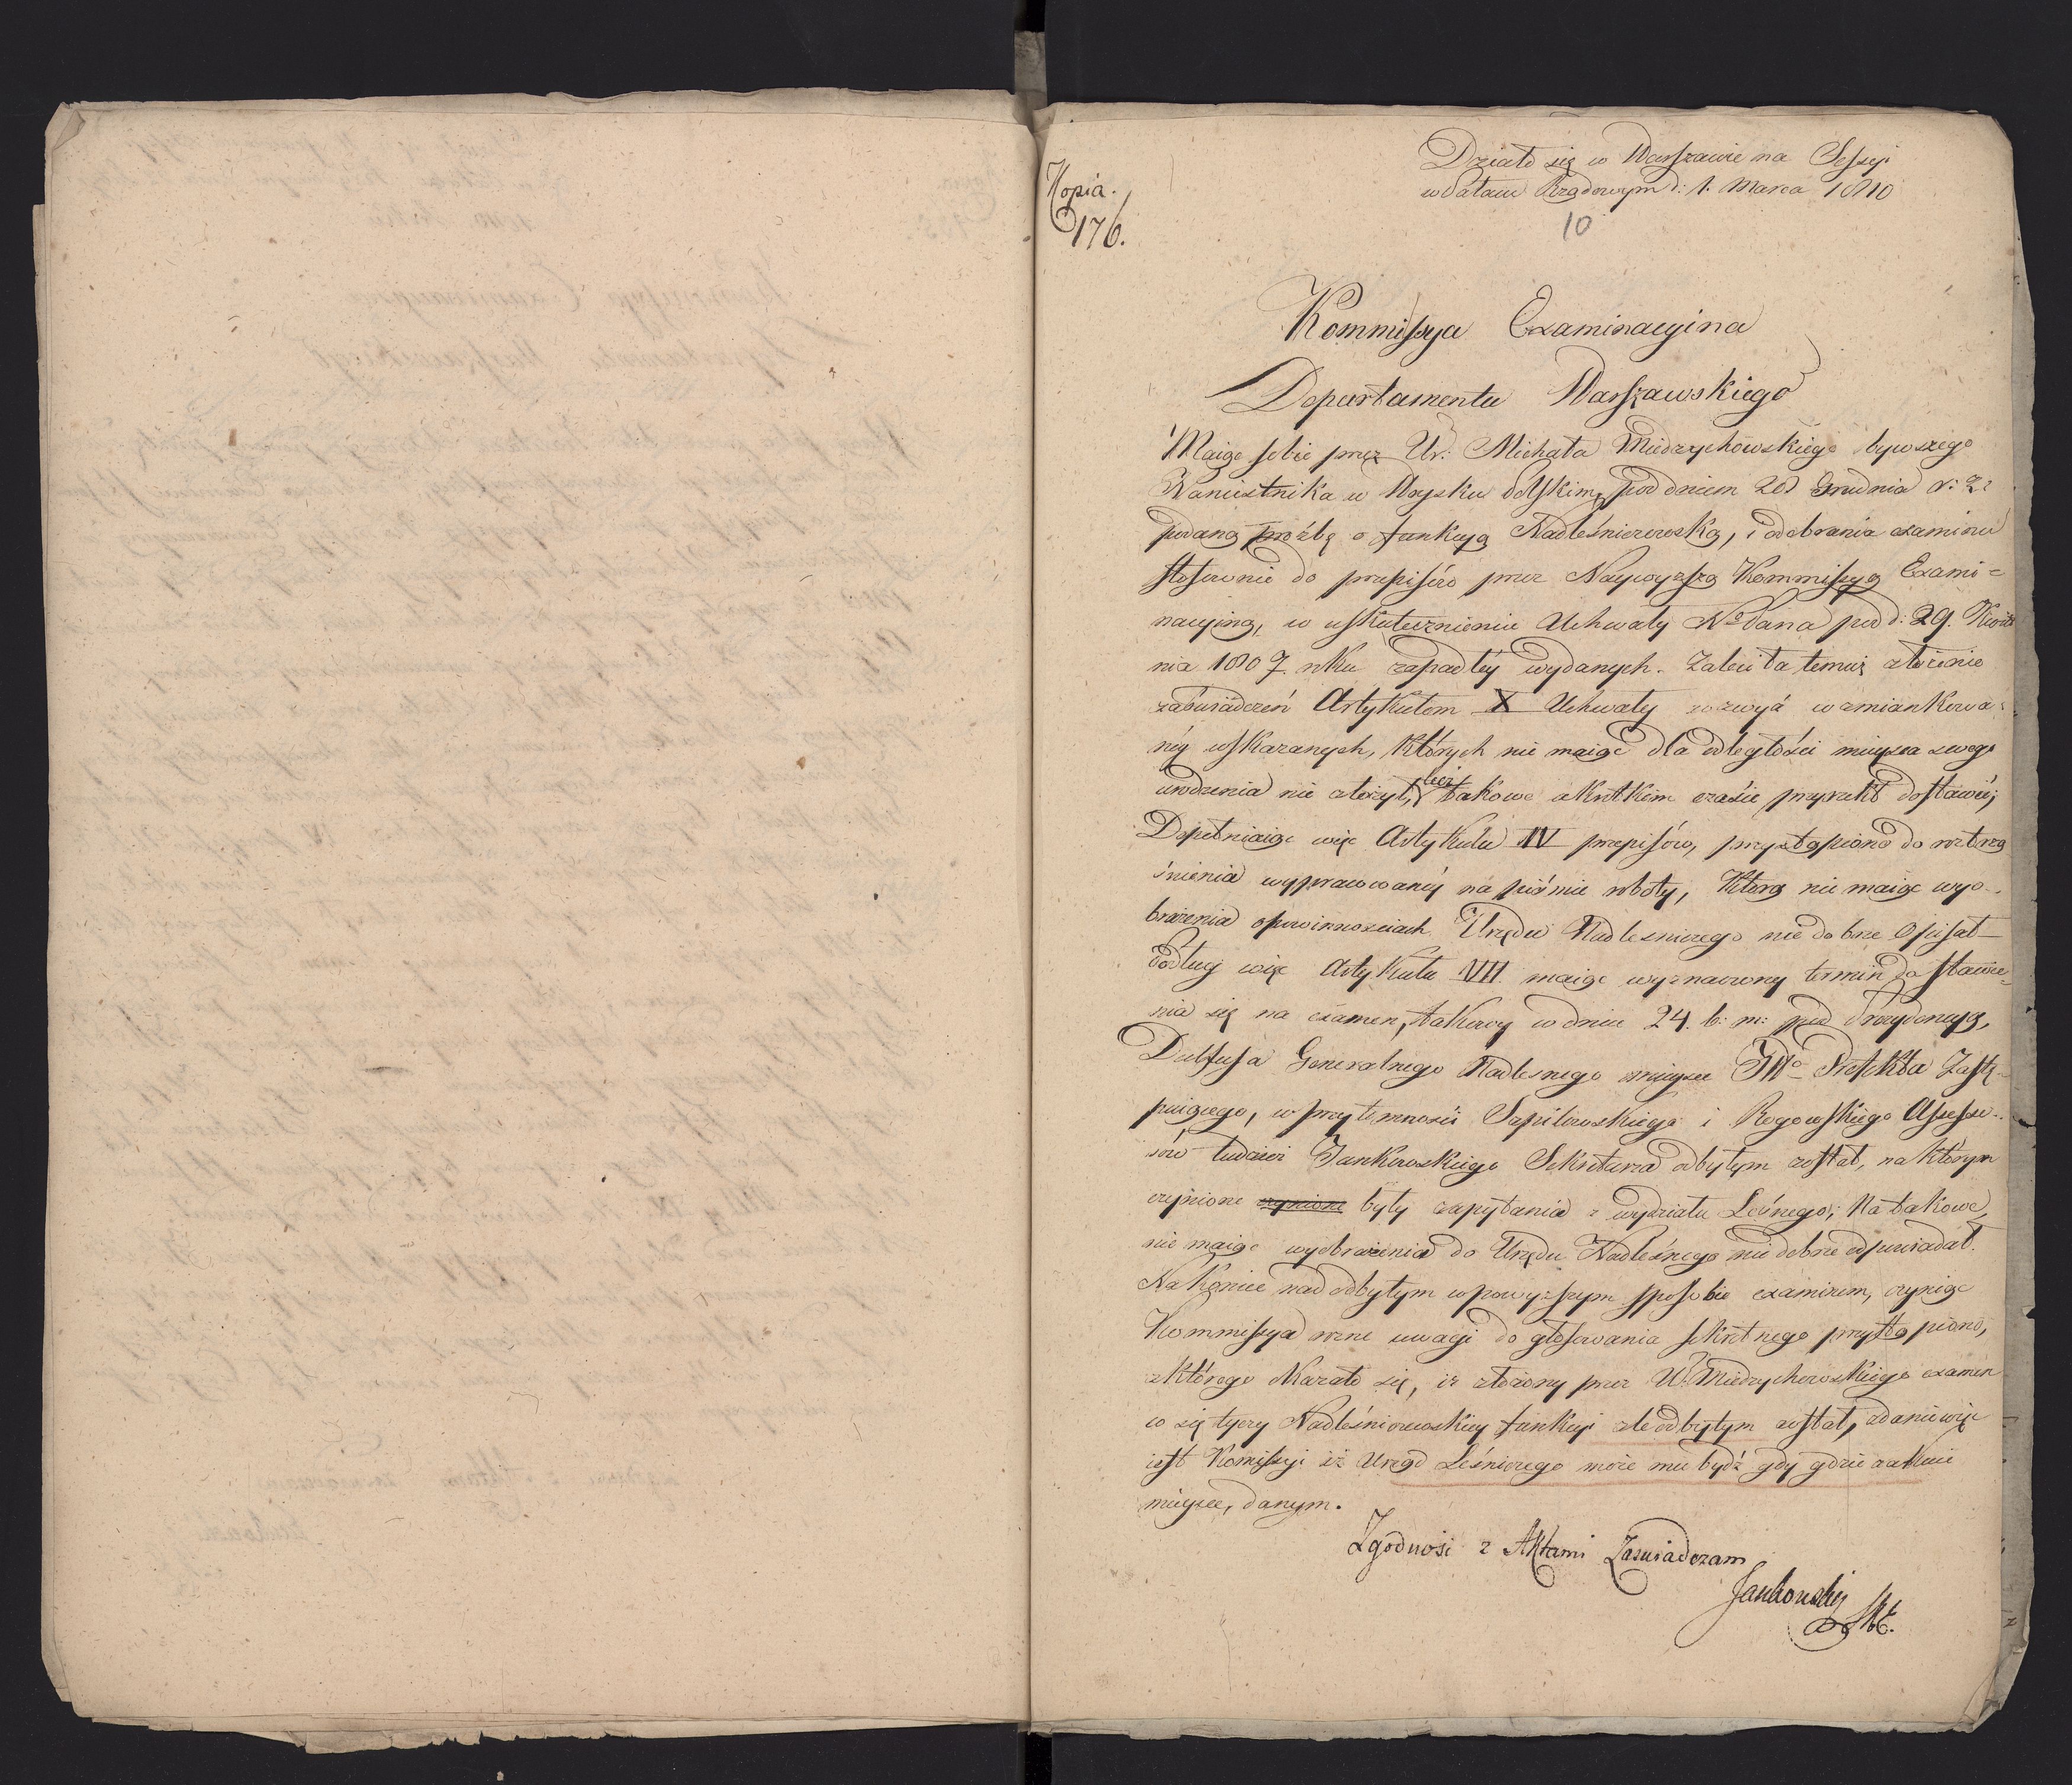 Kopia.
176.
Działo się w Warszawie na Sessyi
w Pałacu Rządowym d: 1. Marca 1810
10
Kommissya Examinacyina
Departamentu Warszawskiego
Maiąc sobie przez Ur: Michała Miedzychowskiego bywszego
w Woysku Polskim, pod dniem 20 Grudnia r: z:
podaną proźbę o funkcyą Nadleśniczowską, i odebrania examinu
stosownie do przepisów przez Naywyższą Kommissyą Exami=
nacyiną, w uskutecznieniu Uchwały Nro dana pod d: 29. Kwiet
nia 1807. roku zapadłéy wydanych. Zaleciła temuż złożenie
zaświadczeń Artykułem X Uchwały zwyż wzmiankowa=
néy wskazanych, których nie maiąc dla odległości mieysca swego
urodzenia nie złożył, lecz takowe w krótkim czasie przyrzekł dostawić;
Dopełniaiąc więc Artykułu IV przepisów, przystąpiono do roztrzą
śnienia wypracowanéy na piśmie roboty, którą nie maiąc wyo-
brażenia o powinnościach Urzędu Nadlesniczego nie dobrze opisał—
Podług więc Artykułu VII. maiąc wyznaczony termin do stawie=
nia się na examen, takowy w dniu 24. b: m: pod Prezydencyą,
Generalnego Nadlesnego mieysce JWo Prefekta Zastę-
puiącego, w przytomności Szpilowskiego i Rogowskiego Assesso-
rów tudzież Jankowskiego Sekretarza odbytym został, na którym
czynione czynione były zapytania z wydziału Leśnego; Na takowe,
nie maiąc wyobrażenia do Urzędu Nadleśnego nie dobrze odpowiadał.
Nakoniec nad odbytym w powyższym sposobie examinem, czyniąc
Kommissya rozne uwagi do głosowania sekretnego przystąpiono,
z którego okazało się, iż złożony przez W. Miedzychowskiego examen
co się tyczy Nadleśniczowskiey funkcyi źle odbytym został, zdaniem więc
iest Komissyi iż Urząd Leśniczego może mu bydź gdy gdzie
mieysce, danym.
Zgodność z Aktami Zaświadczam
Jankowski
Skt.